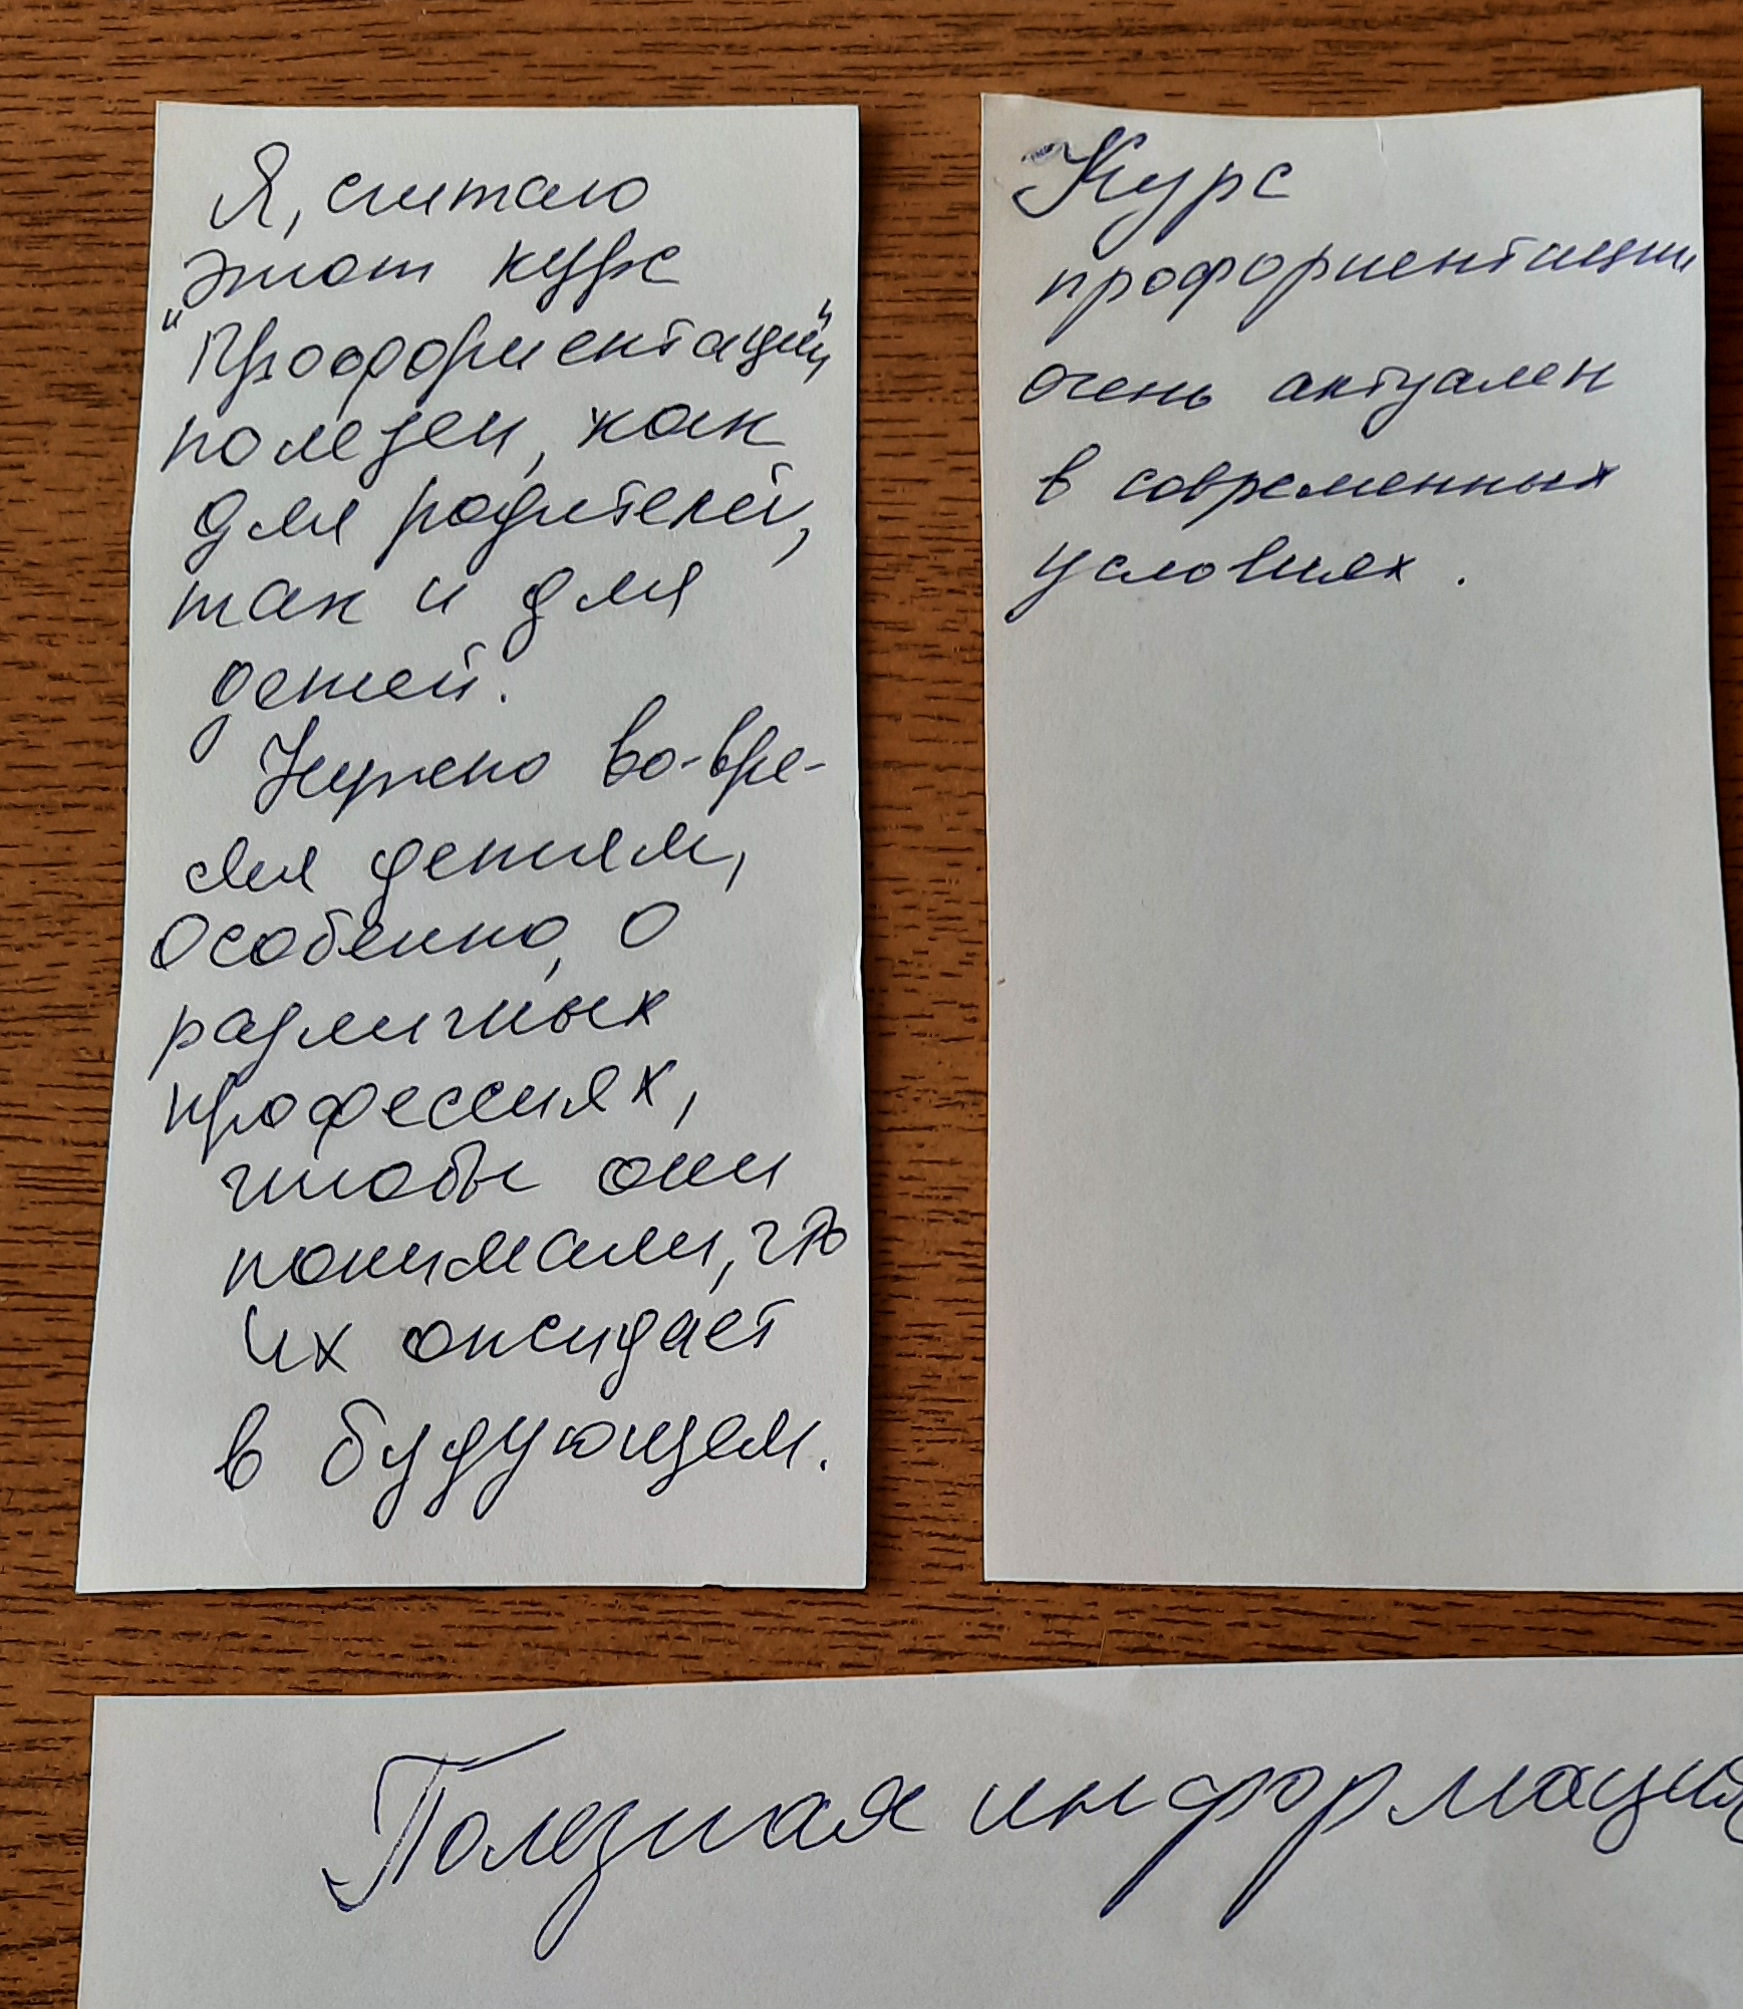 Я, считаю
этот курс
"Профориентации"
полезен, как
для родителей,
так и для
детей.
Нужно во-вре-
мя детям,
особенно, о
различных
профессиях,
чтобы они
понимали, что
их ожидает
в будующем.
Курс
профориентации
очень актуален
в современных
условиях.
Полезная информация